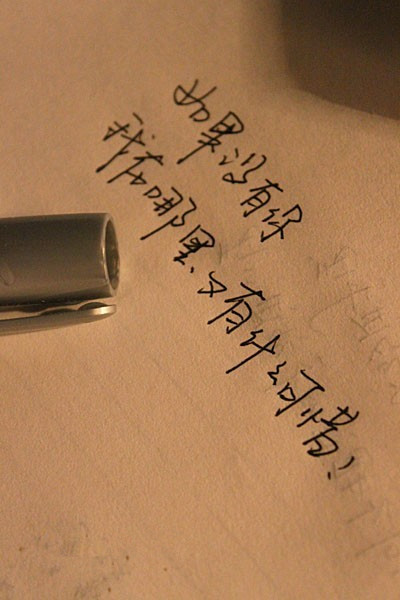 如果没有你
我在哪里、又有什么可惜！